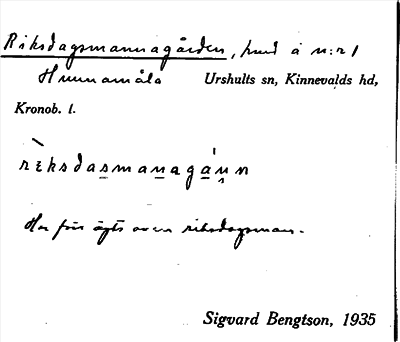 Riksdagsmannagården, hmd å n:r 1
Hunnamåla Urshults sn, Kinnevalds hd,
Kronob. l.
rìksdasmanagáṇn
Har förr ägts av en riksdagsman.
Sigvard Bengtson, 1935